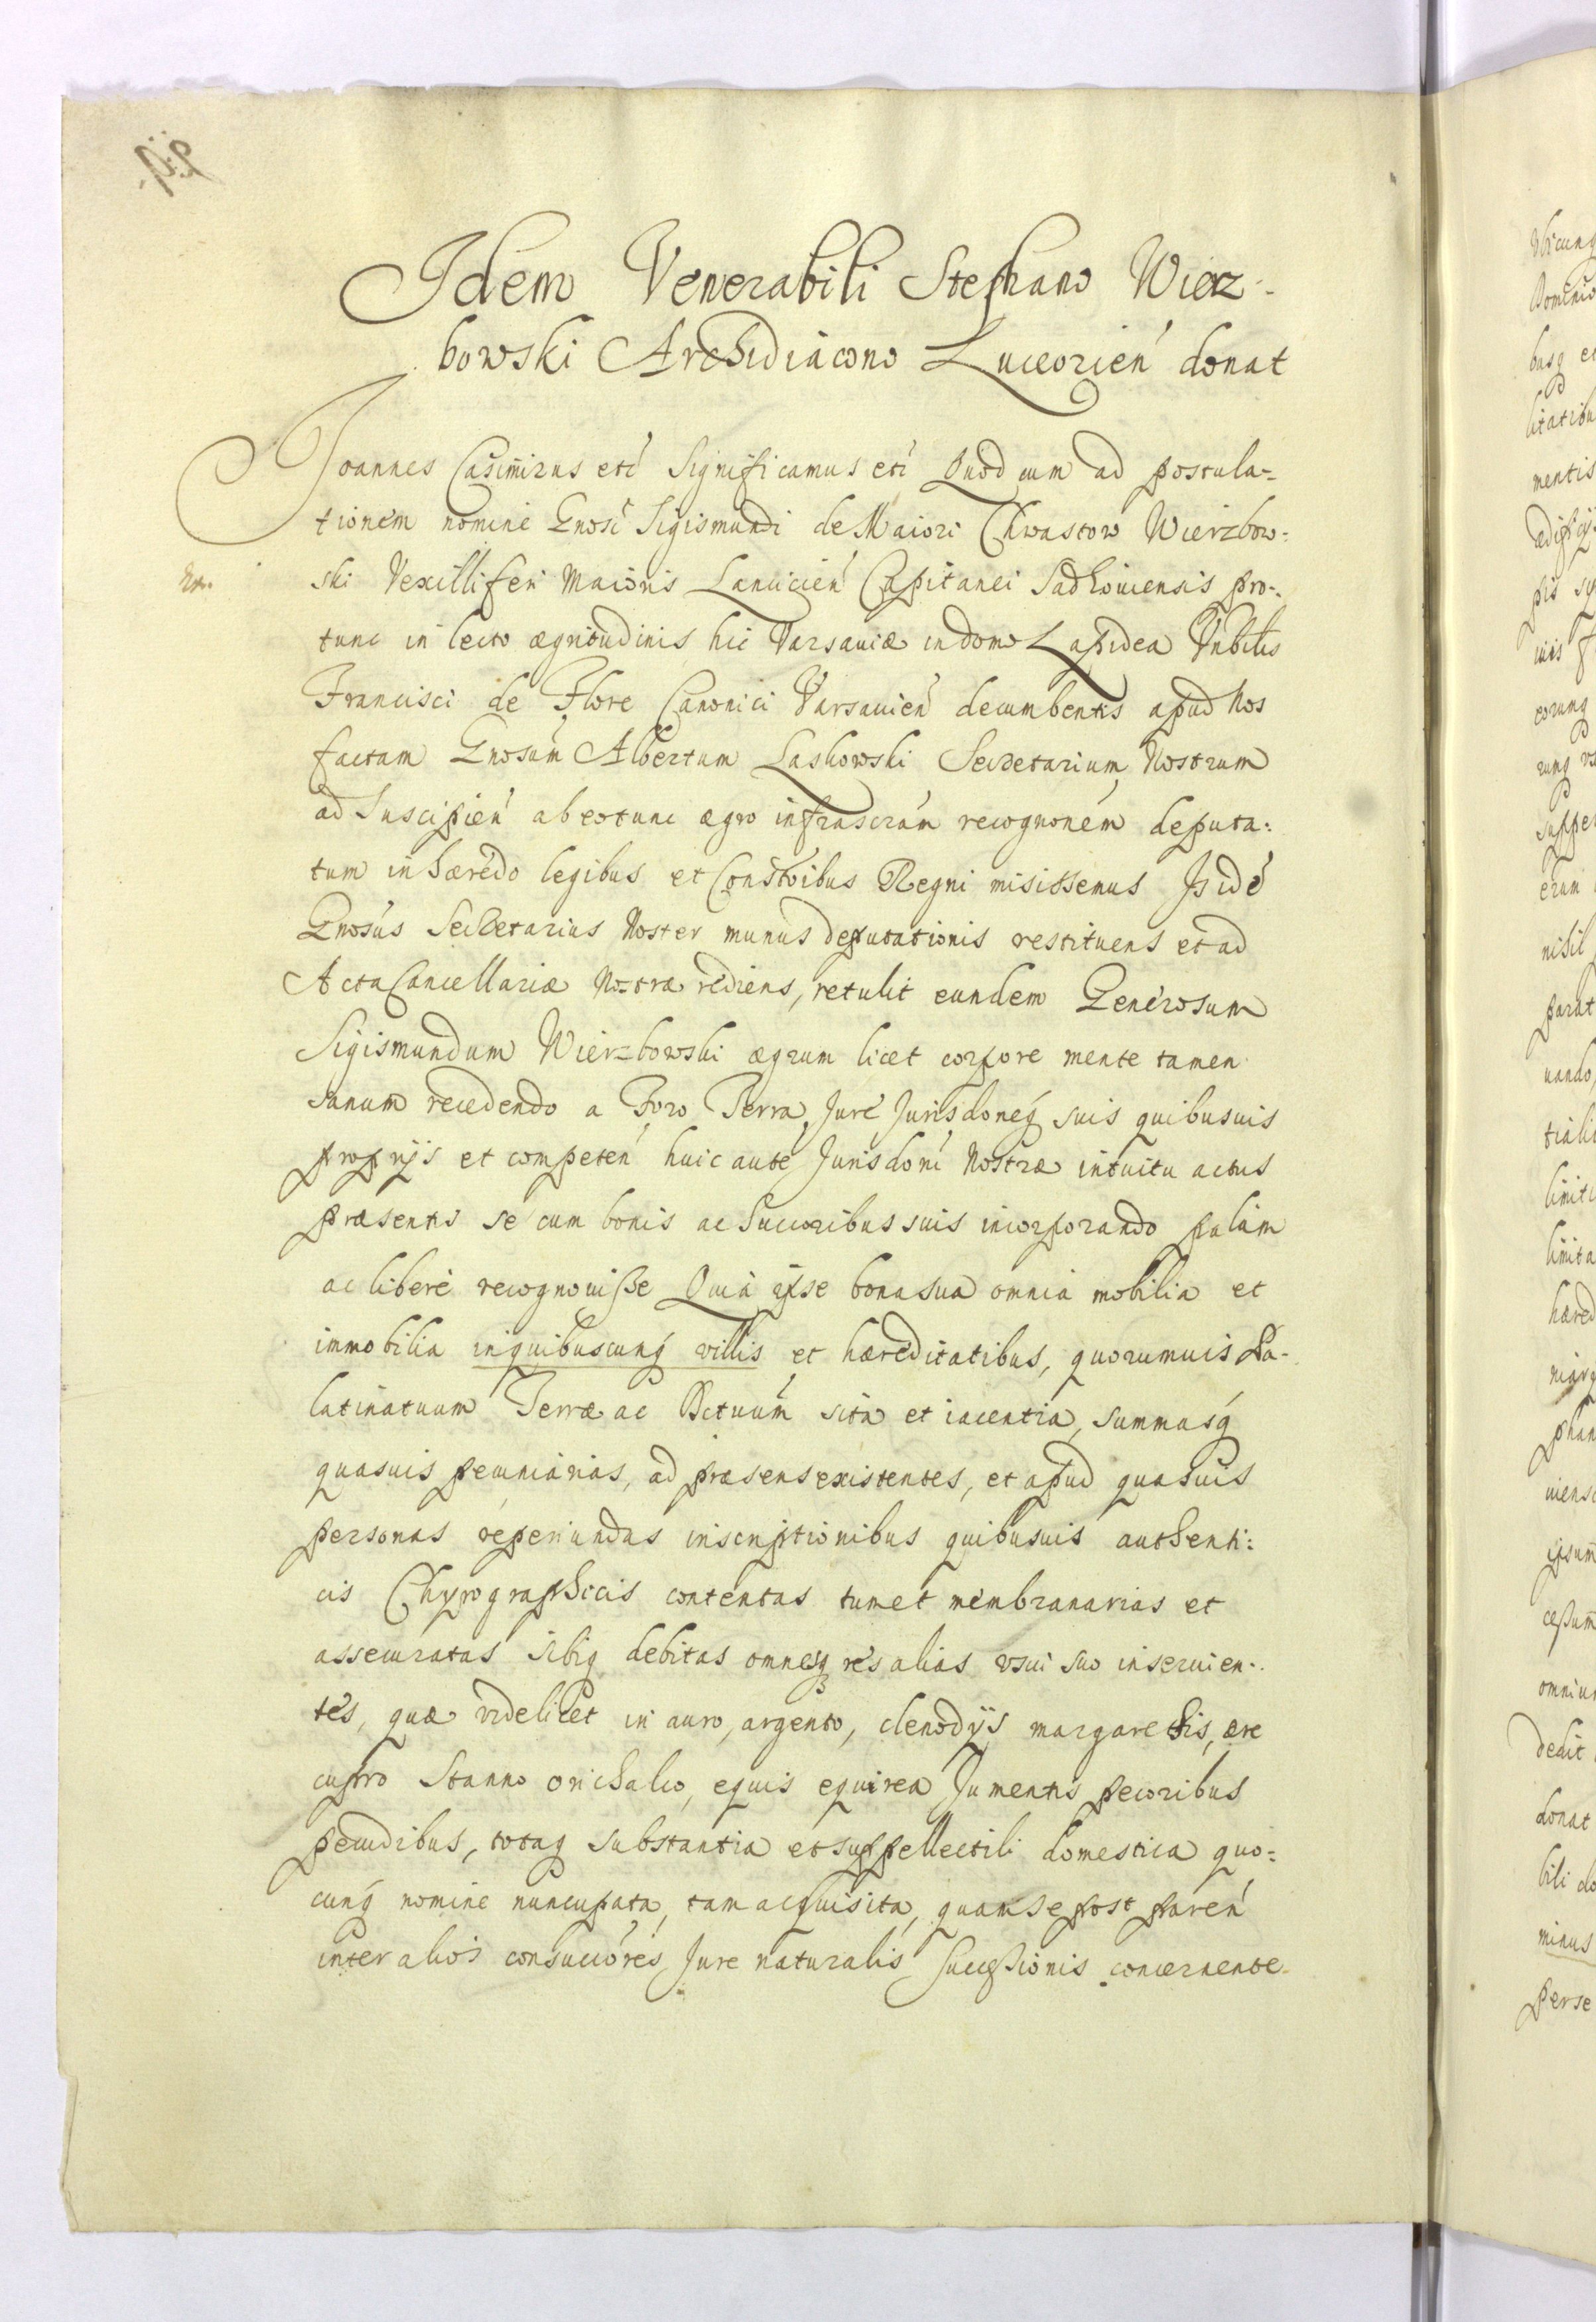 Idem Venerabili Stephano Wierz-
bowski Archidiacono Luceorien donat
Joannes Casimirus etc Significamus etc Quod cum ad postula-
tionem nomine Gnosi Sigismundi de Maiori Chwastow Wierzbow-
ski Vexilliferi Maioris Lancicien Capitanei Sadloviensis pro-
tunc in lecto ægritudinis hic Varsaviæ in domo Lapidea Vnbilis
Francisci de Flore Canonici Varsavien decumbentis apud Nos
factam Gnosum Albertum Laskowski Secretarium Nostrum
ad Suscipien ab eotunc ægro infrascram recognonem deputa-
tum inhærendo legibus et Constoibus Regni misissemus Is idé
Gnosus Secretarius Noster munus deputationis restituens et ad
Acta Cancellariæ Nostræ rediens, retulit eundem Generosum
Sigismundum Wierzbowski ægrum licet corpore mente tamen
sanum recedendo a Foro Terra, Jure Jurisdoneq suis quibusvis
proprijs et competen huic auté Jurisdoni Nostræ intuitu actus
præsentis se cum bonis ac Succoribus suis incorporando palam
ac libere recognovisse Quia ipse bona sua omnia mobilia et
immobilia in quibuscunq villis et hæreditatibus, quorumvis Pa-
latinatuum Terræ ac Dictuum sita et iacentia, summasq
quasvis pecuniarias, ad præsens existentes, et apud quasvis
personas reperiundas inscriptionibus quibusvis authenti-
cis Chyrographicis contentas tum et membranarias et
assecuratas sibiq debitas omnesq res alias vsui suo inservien-
tes, quæ videlicet in auro, argento, clenodijs margarethis, ære
cupro Stanno orichalco, equis equirea Jumentis pecoribus
pecudibus, totaq substantia et suppellectili domestica quo-
cunq nomine nuncupata, tam acquisita, quam se post paren
inter alios consuccores, Jure naturalis Successionis concernente